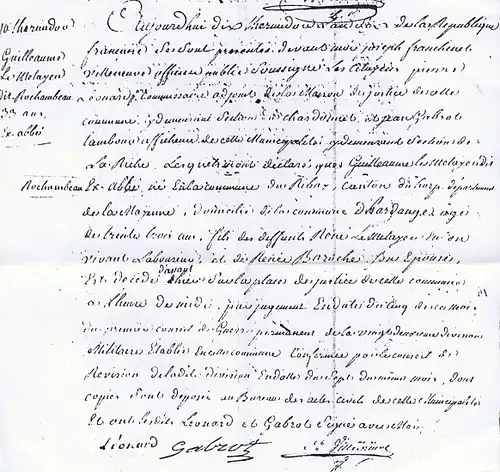 10 thermidor
Guillaume
Le Metayer
dit Rochambeau
33 ans
Ex-abbé
Aujourdhui dix thermidor de la République
francaise se sont presentés devant moi joseph franchinet
Villeneuve officier public soussigné les Citoyens pierre
Léonard Commissaire adjoint de la Maison de justice de cette
commune y demeurant Section du chardonnet, et jean Gabrot
tambour afficheur de cette Municipalité y demeurant Section de
La Riche, Lesquels m'ont declaré que Guillaume le Metayer dit
Rochambeau Ex-Abbé, né en la commune du Ribay canton du horp departement
de la Mayenne, domicilié de la commune d'hardanges agé
de trente trois ans, fils des deffunts René Le Metayer en son
vivant Laboureur, et de Renée Baroche Son Epouse,
Est decedé davant hier Sur la place de justice de cette commune
a l'heure de midi, par jugement En date du cinq de ce mois
du premier conseil de Guerre permanent de la vingt deuxieme division
Militaire Etablie En cette commune Confirmée par le conseil de
Revision de la dite division En datte du Sept du meme mois, dont
copies Sont deposée au Bureau des actes civils de cette Municipalité
Et ont les dits Léonard et Gabrot Signé avec Moi.
Léonard Gabrot Villeneuve